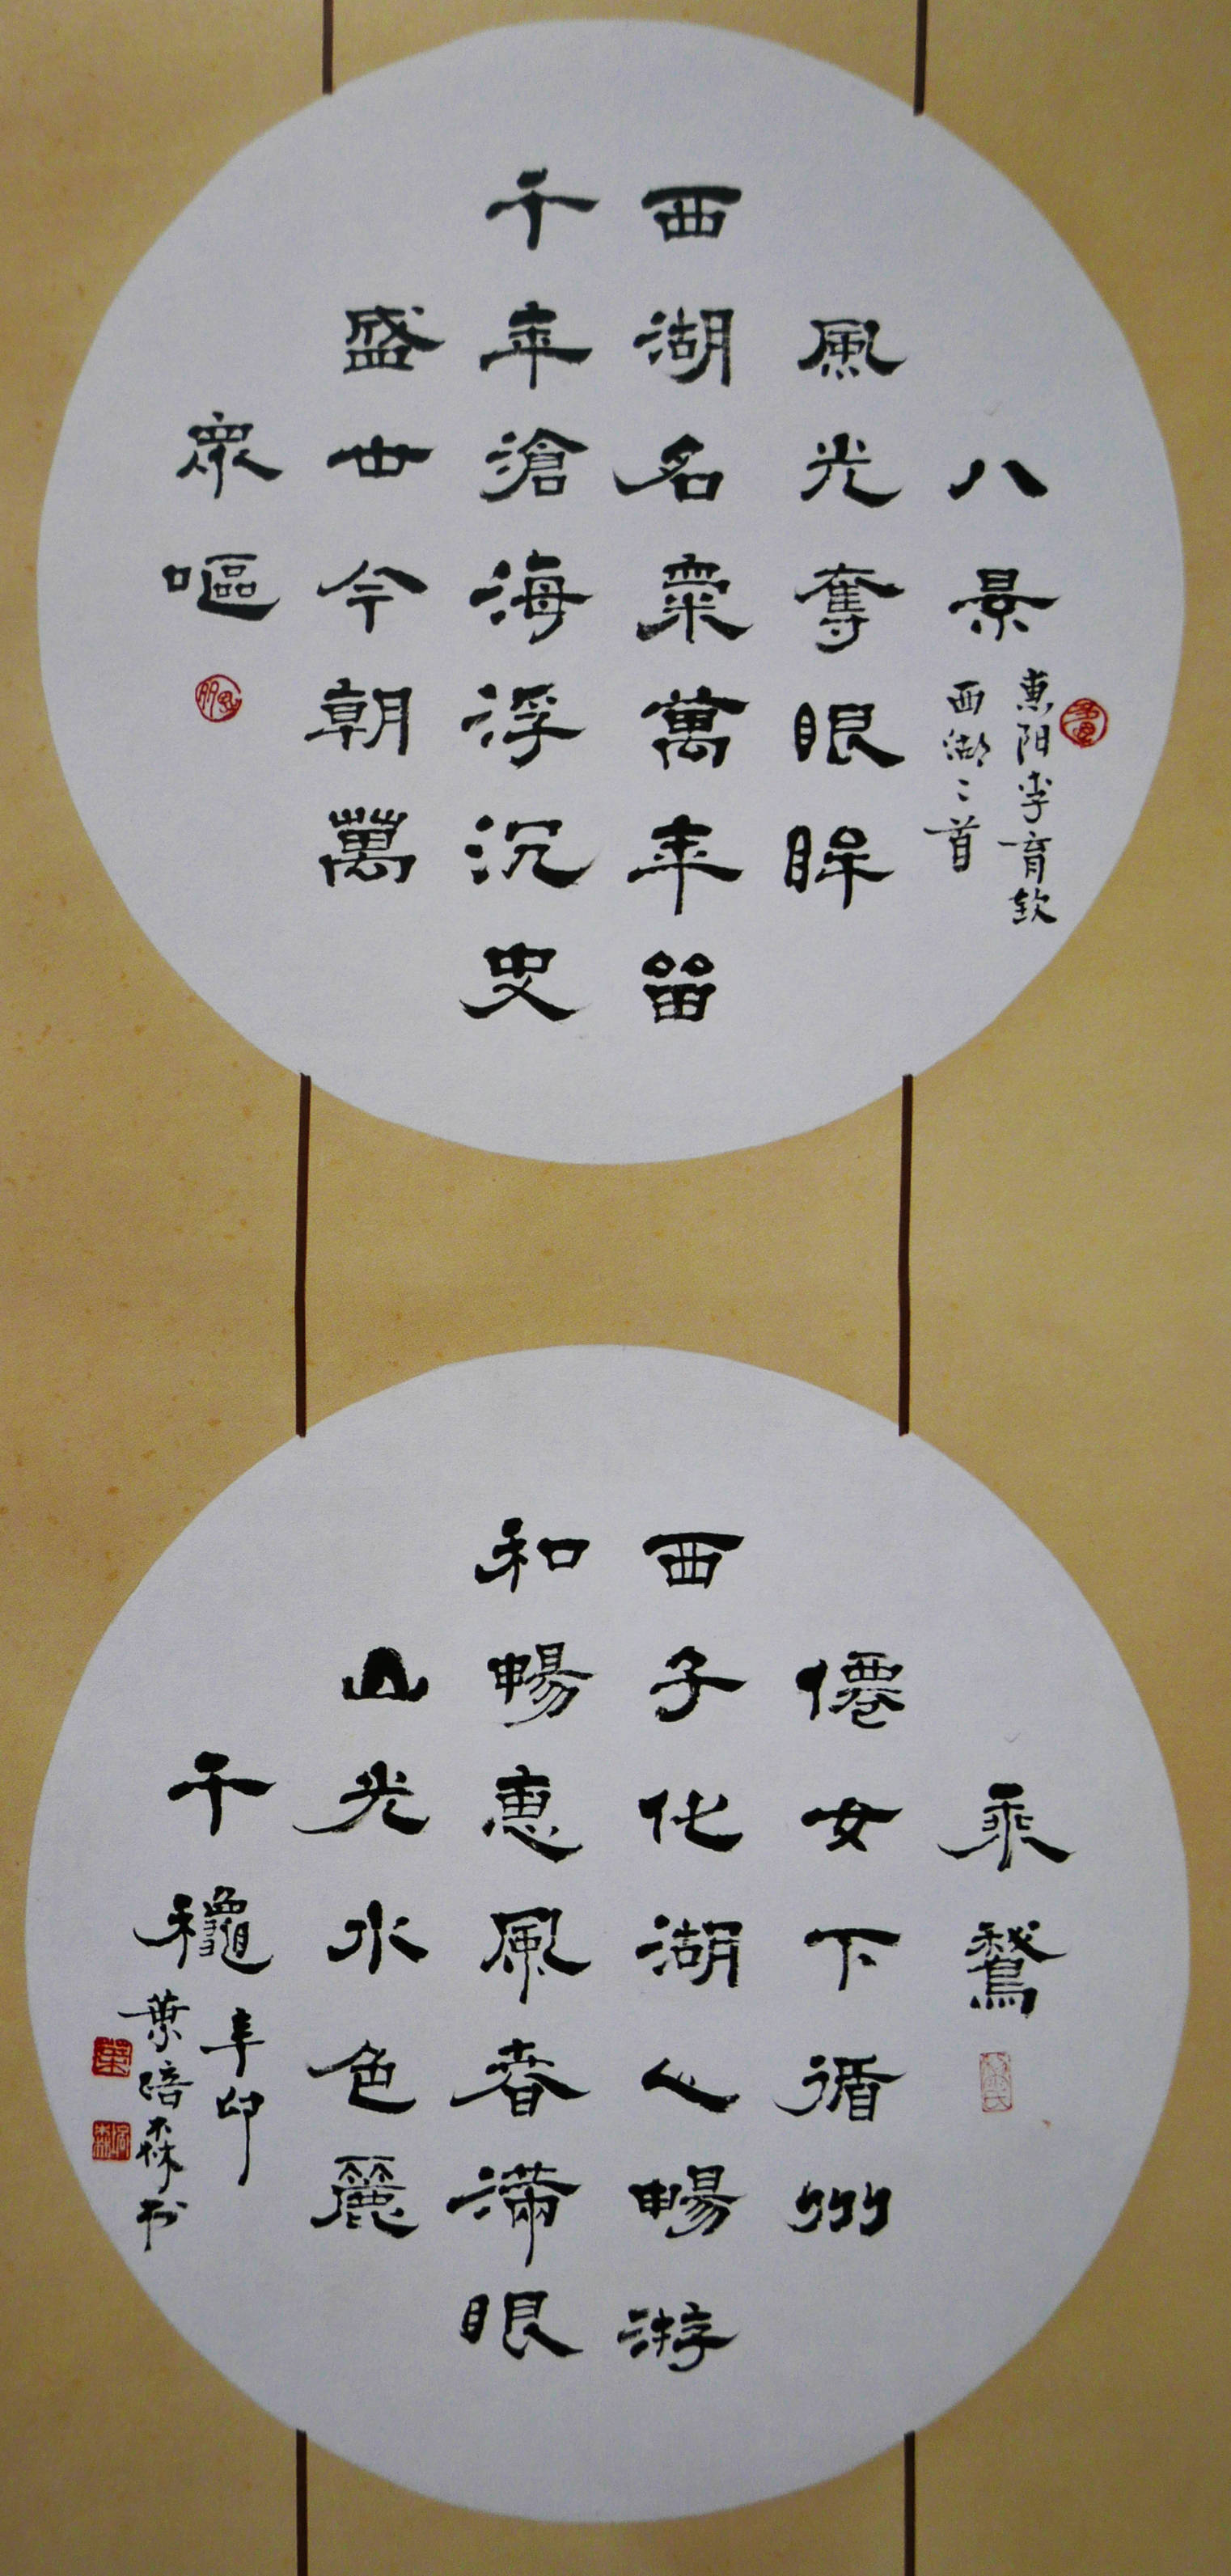 八景
惠阳李育钦
西湖二首
風光奪眼眸
西湖名萬年留
千年滄海浮沉史
盛世今朝萬
衆嘔
乘鵞
僊女下循州
西子化湖人暢游
和暢惠風春滿眼
山光水色麗
千龝
辛卯
葉培森书